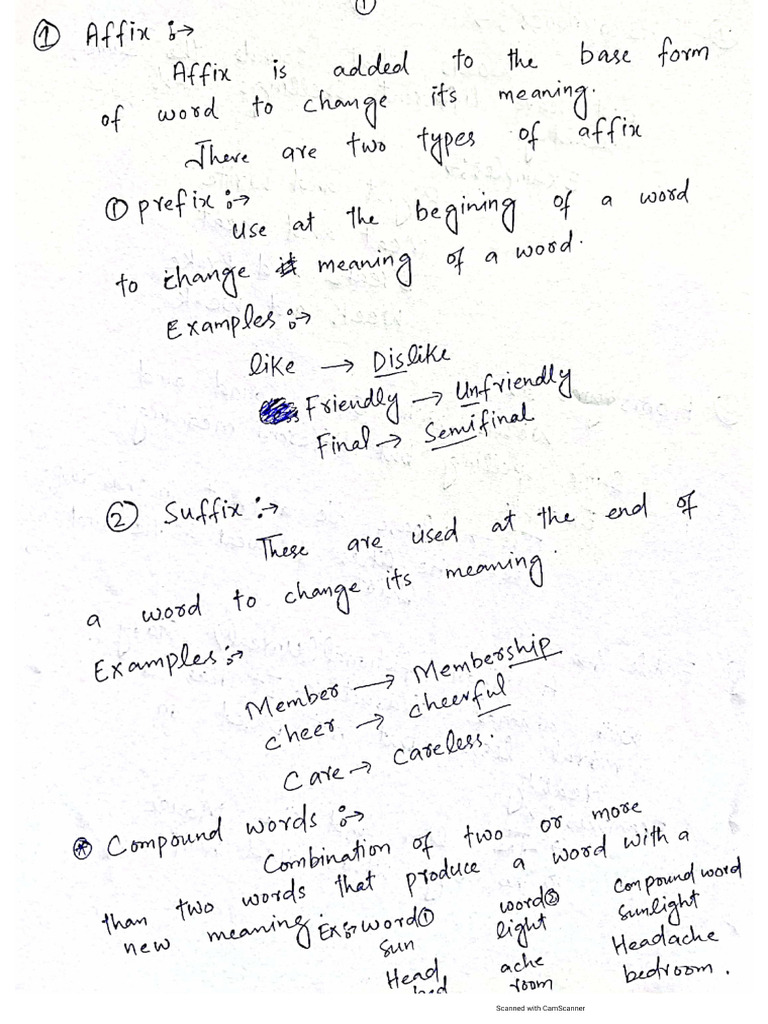 ①
① Affix :→
Affix is added to the base form
of word to change its meaning.
There are two types of affix
① prefix :→
Use at the begining of a word
to change meaning of a word.
Examples :→
like → Dislike
Friendly → Unfriendly
Final → Semifinal
② Suffix :→
These are used at the end of
a word to change its meaning.
Examples :→
Member → Membership
cheer → cheerful
Care → Careless.
Compound words :→
Combination of two or more
than two words that produce a word with a
new meaning. Ex:→ word① word② compound word
Sun light Sunlight
Head ache Headache
bed room bedroom.
Scanned with CamScanner